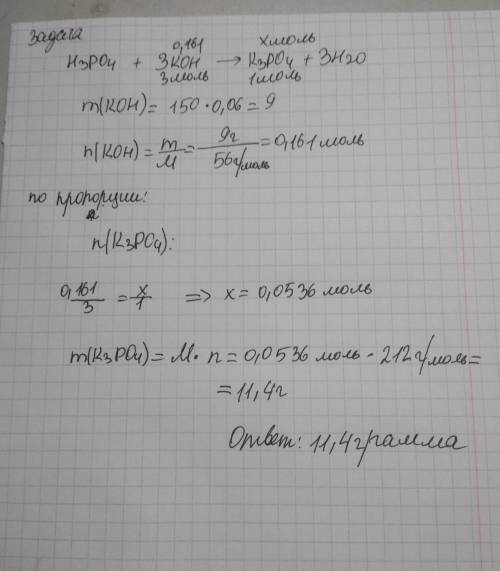 Задача
0,161 x моль
H3PO4 + 3KOH → K3PO4 + 3H2O
3моль 1моль
m(KOH) = 150 · 0,06 = 9
n(KOH) = m/M = 9г/56г/моль = 0,161 моль
по пропорции:
n(K3PO4):
0,161/3 = x/1 => x = 0,0536 моль
m(K3PO4) = M · n = 0,0536 моль · 212 г/моль =
= 11,4г
Ответ: 11,4грамма